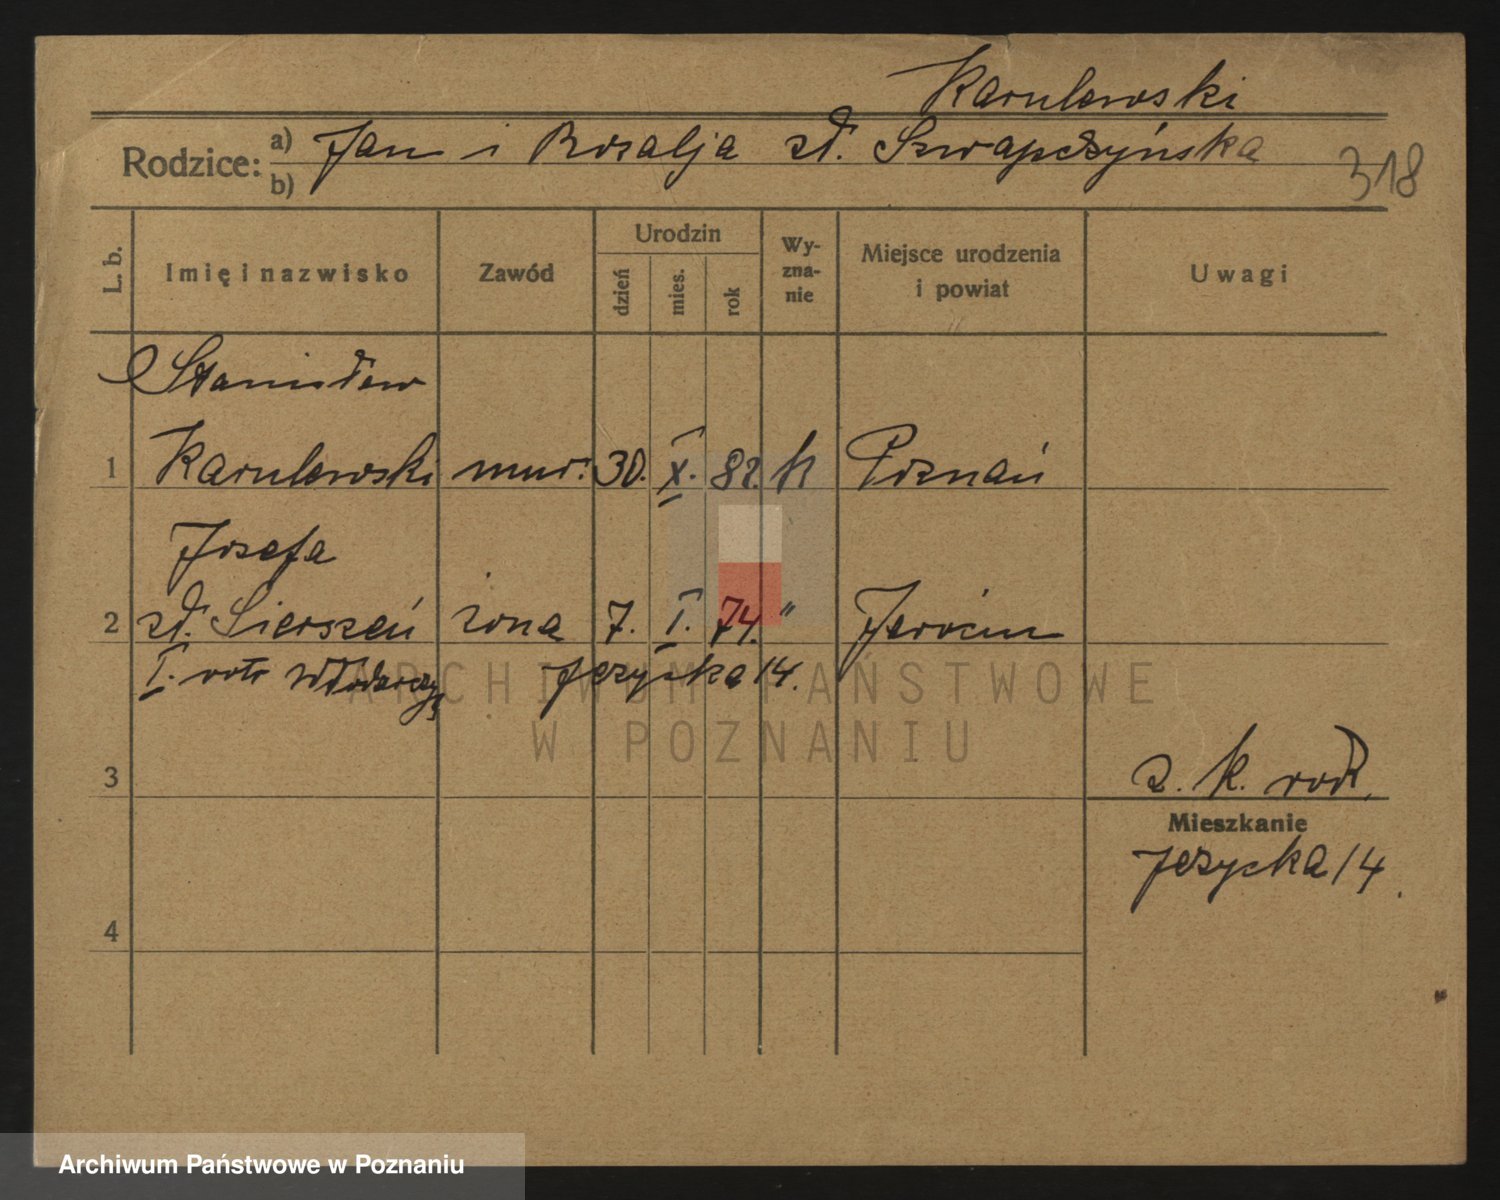 Karulewski
Rodzice: a) Jan i Rozalja zd. Szwapczyńska
b)
318
L. b.
Imię i nazwisko
Zawód
Urodzin
dzień
mies.
rok
Wy-
zna-
nie
Miejsce urodzenia
i powiat
Uwagi
Stanisław
1 Karulewski mur. 30. X. 82. k Poznań
Józefa
2 zd. Sierszeń żona 7. I. 74. " Jarocin
I. voto Jeżycka 14.
ARCHIWUM PAŃSTWOWE
W POZNANIU
3
z. k. rod.
Mieszkanie
Jeżycka 14.
4
Archiwum Państwowe w Poznaniu